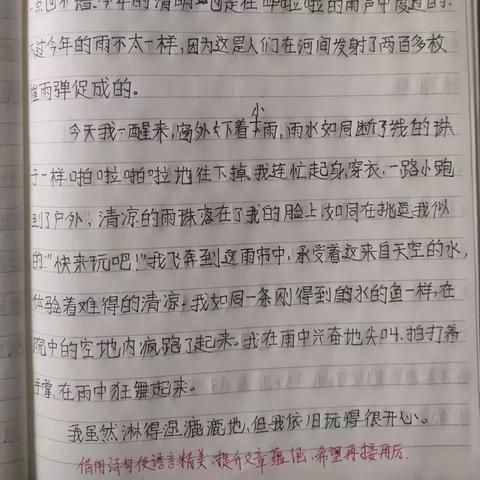 点也不错。今年的清明也是在哗啦啦的雨声中度过的.
不过今年的雨不太一样,因为这是人们在河间发射了两百多枚
催雨弹促成的。
今天我一醒来,窗外下着小雨,雨水如同断了线的珠
子一样啪啦啪啦地往下掉.我连忙起身,穿衣.一路小跑
到了户外,清凉的雨珠落在了我的脸上,如同在挑逗我似
的:"快来玩吧!"我飞奔到这雨帘中,承受着这来自天空的水,
体验着难得的清凉.我如同一条刚得到的水的鱼一样,在
院中的空地内疯跑了起来。我在雨中兴奋地尖叫.拍打着
手掌,在雨中狂舞起来。
我虽然淋得湿漉漉地,但我依旧玩得很开心。
借用诗句使语言精美.提升文章蕴涵,希望再接再厉.